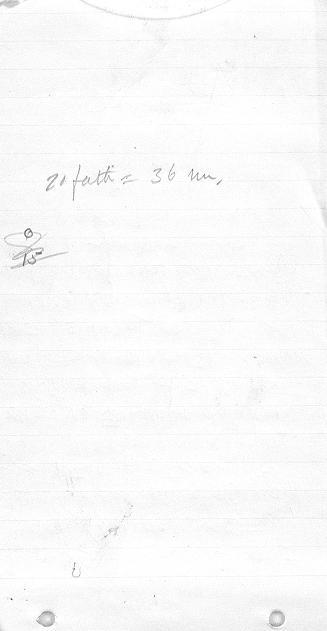 20 fath = 36 m.
15